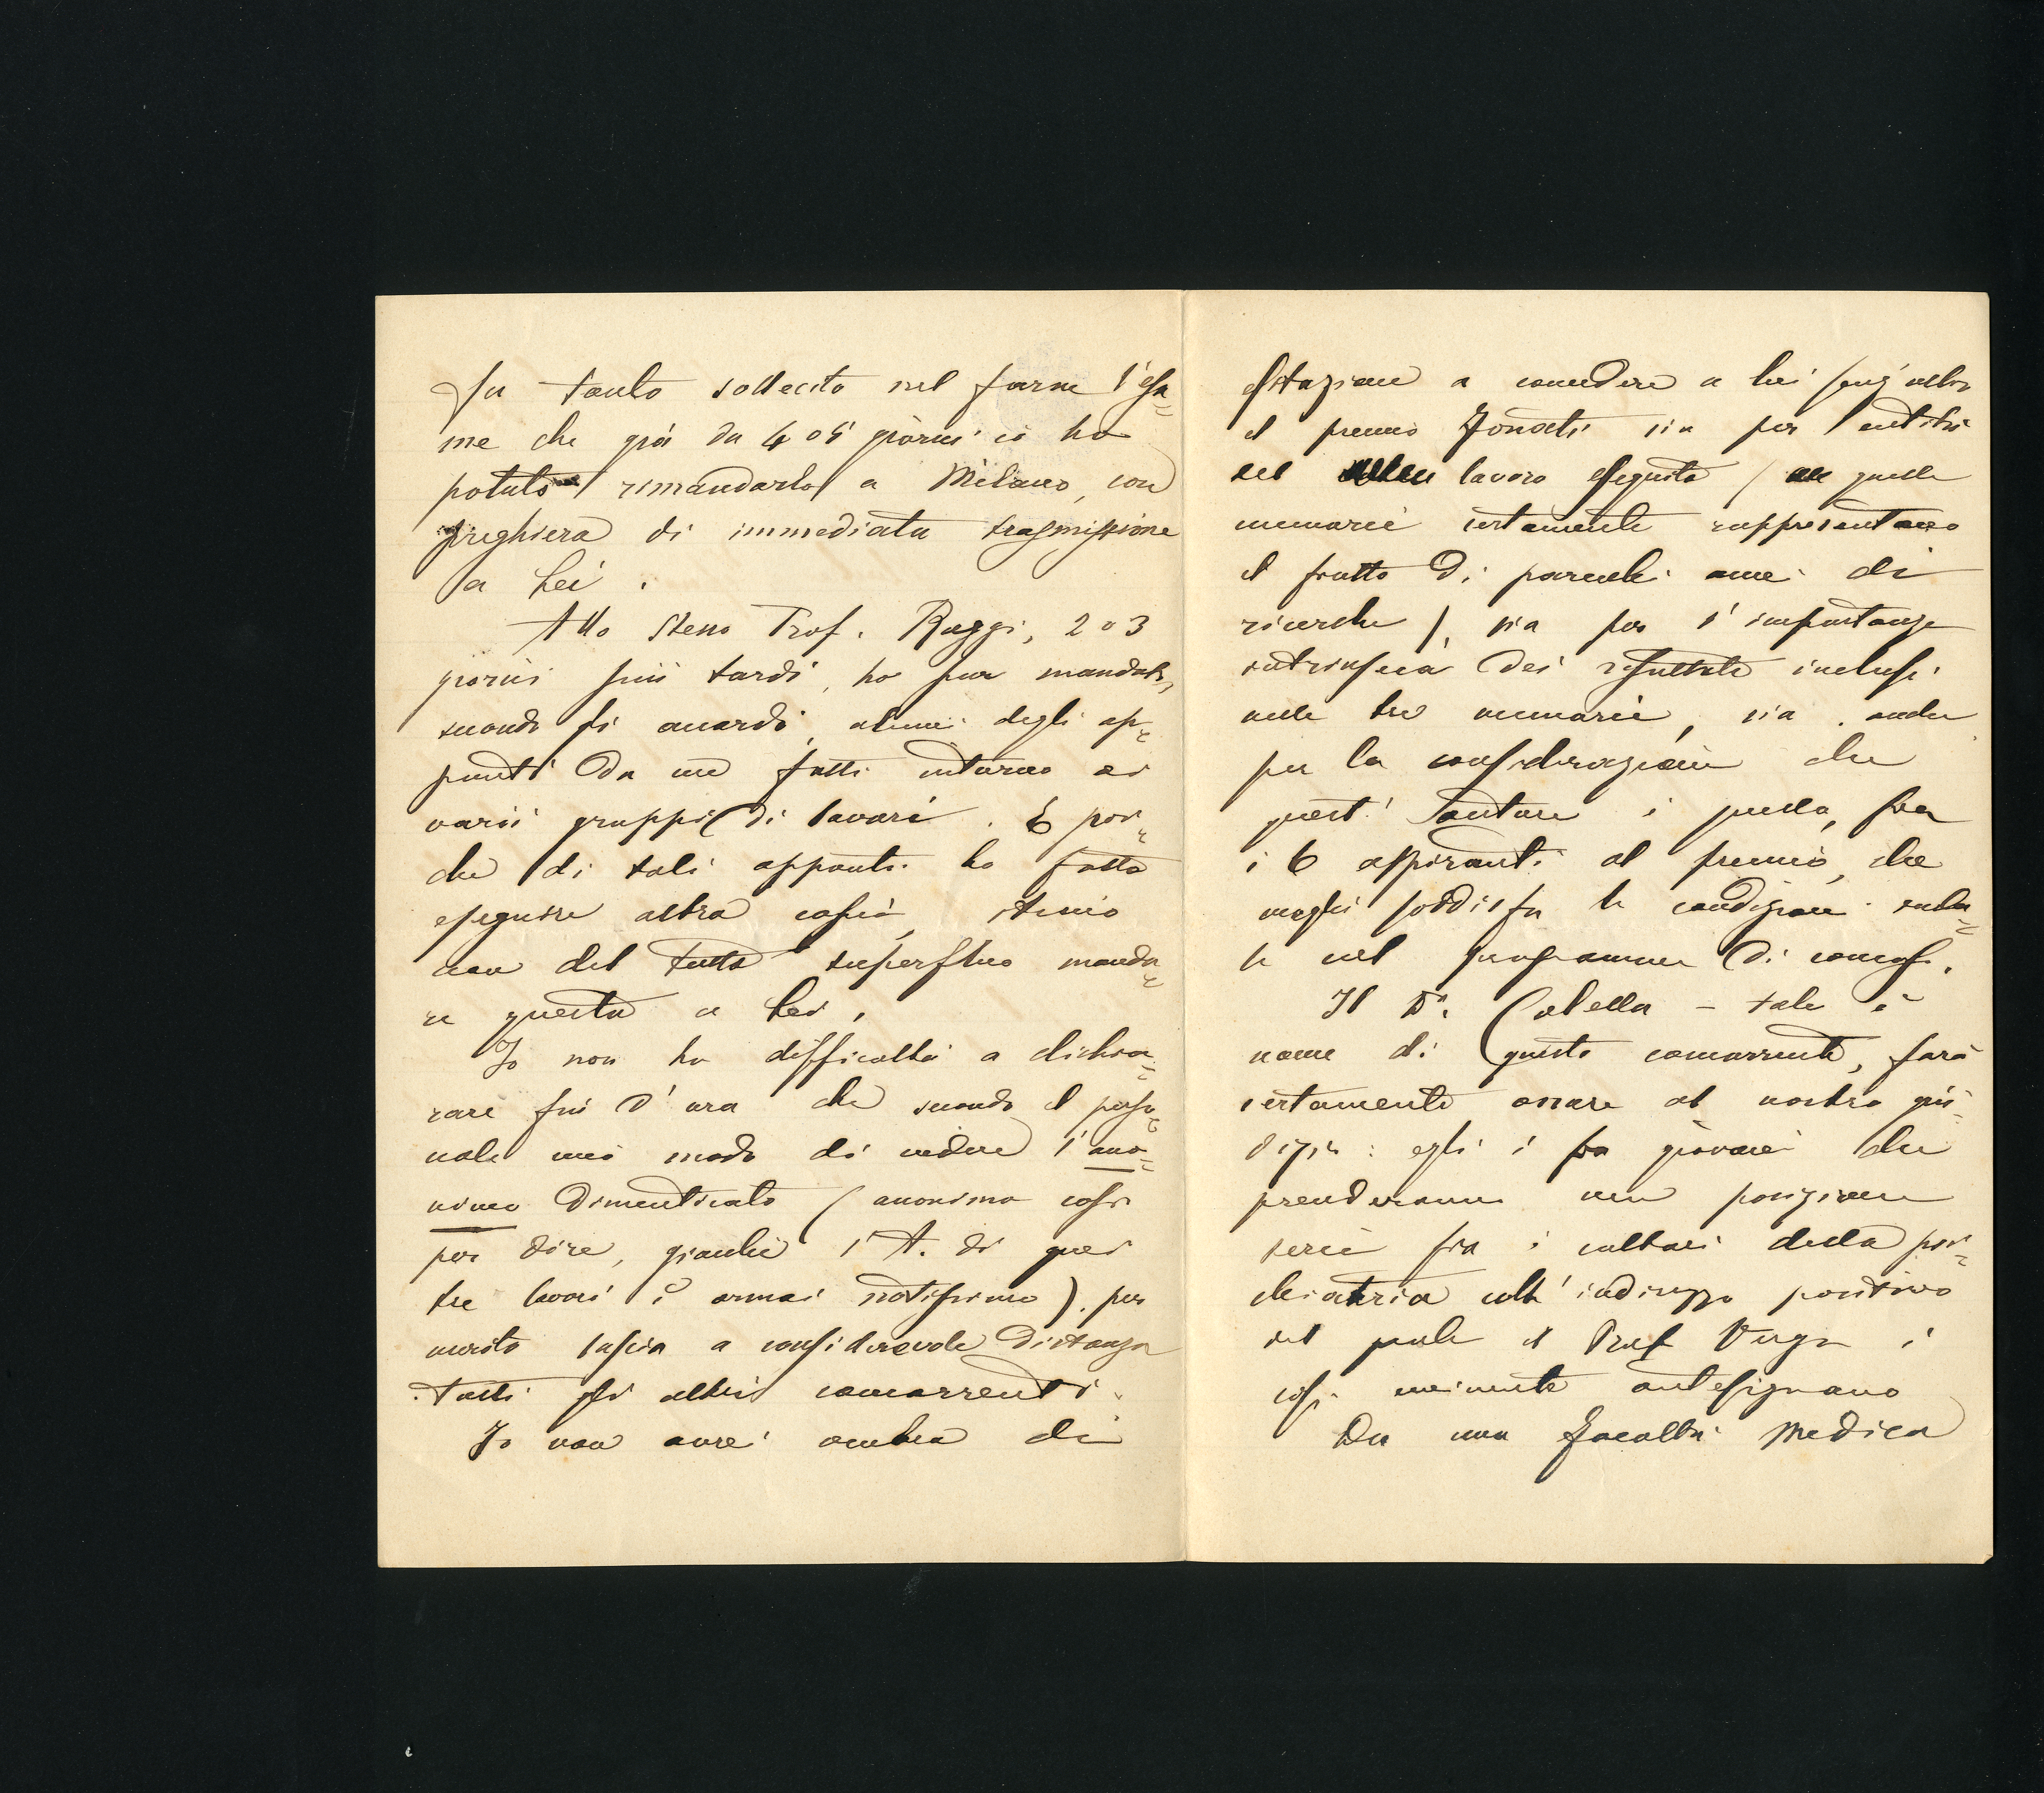 fu tanto sollecito nel farne l'esa=
me che già da 4 o 5 giorni io ho
potuto rimandarlo a Milano, con
preghiera di immediata trasmissione
a Lei.
Allo stesso Prof. Raggi, 2 o 3
giorni più tardi, ho pur mandato,
secondo gli accordi, alcuni degli ap=
punti da me fatti intorno ai
varii gruppi di lavori. E poi=
chè di tali appunti ho fatto
eseguire altra copia, stimo
non del tutto superfluo manda=
re questa a Lei.
Io non ho difficoltà a dichia=
rare fin d'ora che secondo il perso=
nale mio modo di vedere l'ano=
nimo dimenticato (anonimo così
per dire, giacchè l'A. di quei
tre lavori è ormai notissimo) per
merito lascia a considerevole distanza
tutti gli altri concorrenti.
Io non avrei ombra di
esitazione a concedere a lui senz'altro
il premio Fossati sia per l'entità
del lavoro eseguito (quelle
memorie certamente rappresentano
il frutto di parecchi anni di
ricerche), sia per l'importanza
intrinseca dei risultati inclusi
nelle tre memorie, sia anche
per la considerazione che
quest'autore è quello, fra
i 6 aspiranti al premio, che
meglio soddisfa le condizioni indica=
te nel programma di concorso.
Il Dr. Cabella – tale è
nome di questo concorrente, farà
certamente onore al nostro giu=
dizio: egli è fra giovani che
prenderanno una posizione
seria fra i cultori della psi=
chiatria coll'indirizzo positivo
del quale il Prof Verga è
così eminente antesignano
Da una Facoltà Medica